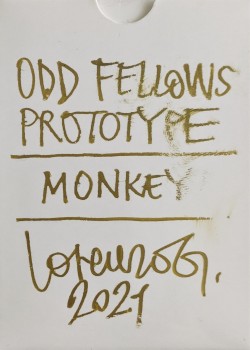 ODD FELLOWS
PROTOTYPE
MONKEY
LorenzoG.
2021